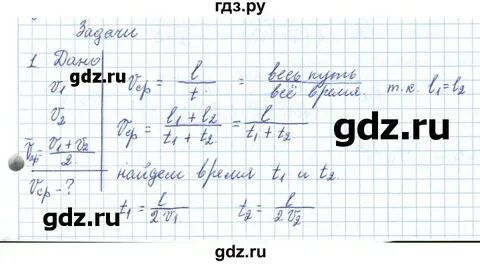 гдз.ру
Задачи
1 Дано
v₁
v₂
v̄ср = (v₁ + v₂)/2
vср - ?
vср = l/t = весь путь/всё время. т.к. l₁ = l₂
vср = (l₁ + l₂)/(t₁ + t₂) = l/(t₁ + t₂)
gdz.ru
найдем время t₁ и t₂
t₁ = l/2v₁ t₂ = l/2v₂
gdz.ru
gdz.ru